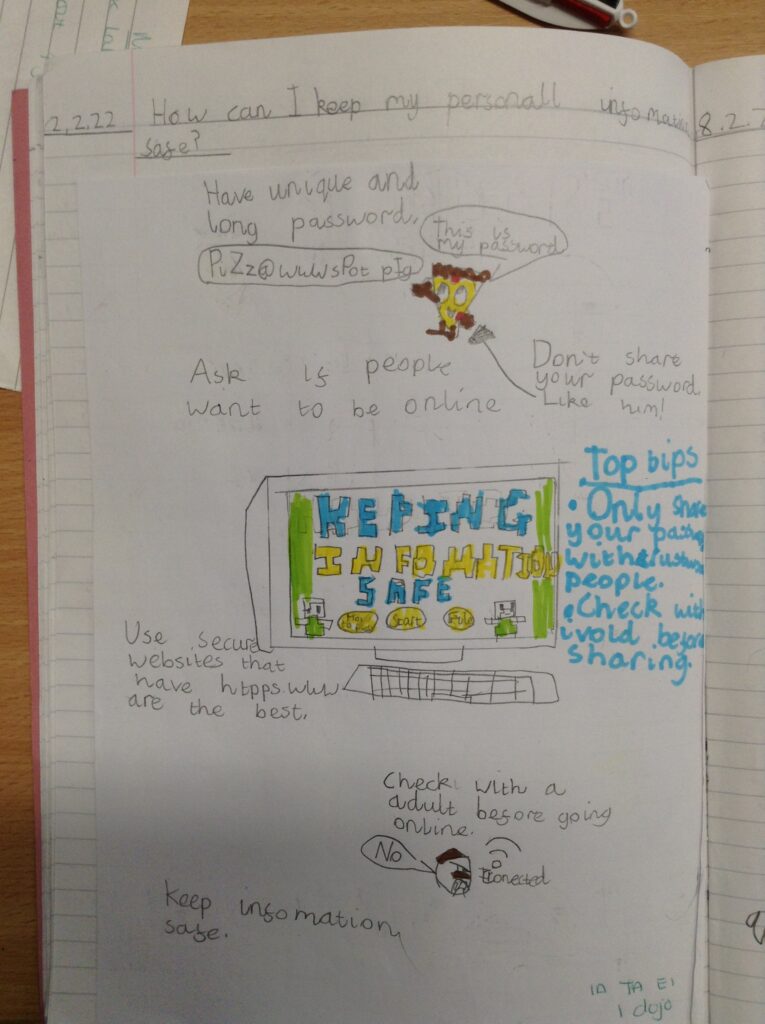 2.2.22 How can I keep my personall infomation
safe?
8.2.2
Have unique and
long password.
This is
my password
PuZz@wwwsPot pIg
Ask if people
want to be online
Don't share
your password.
Like him!
KEPING
INFOMATION
SAFE
Start
Top bips
• Only share
your
with
people.
• Check with
before
sharing.
Use secure
websites that
have htpps.www
are the best.
Check with a
adult before going
online.
No
Conected
Keep infomation
safe.
1 dojo